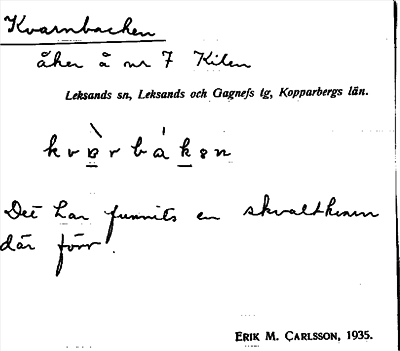 Kvarnbacken
åker å nr 7 Kilen
Leksands sn, Leksands och Gagnefs tg, Kopparbergs län.
kvàrbákən
Det har funnits en skvaltkvarn
där förr.
ERIK M. CARLSSON, 1935.